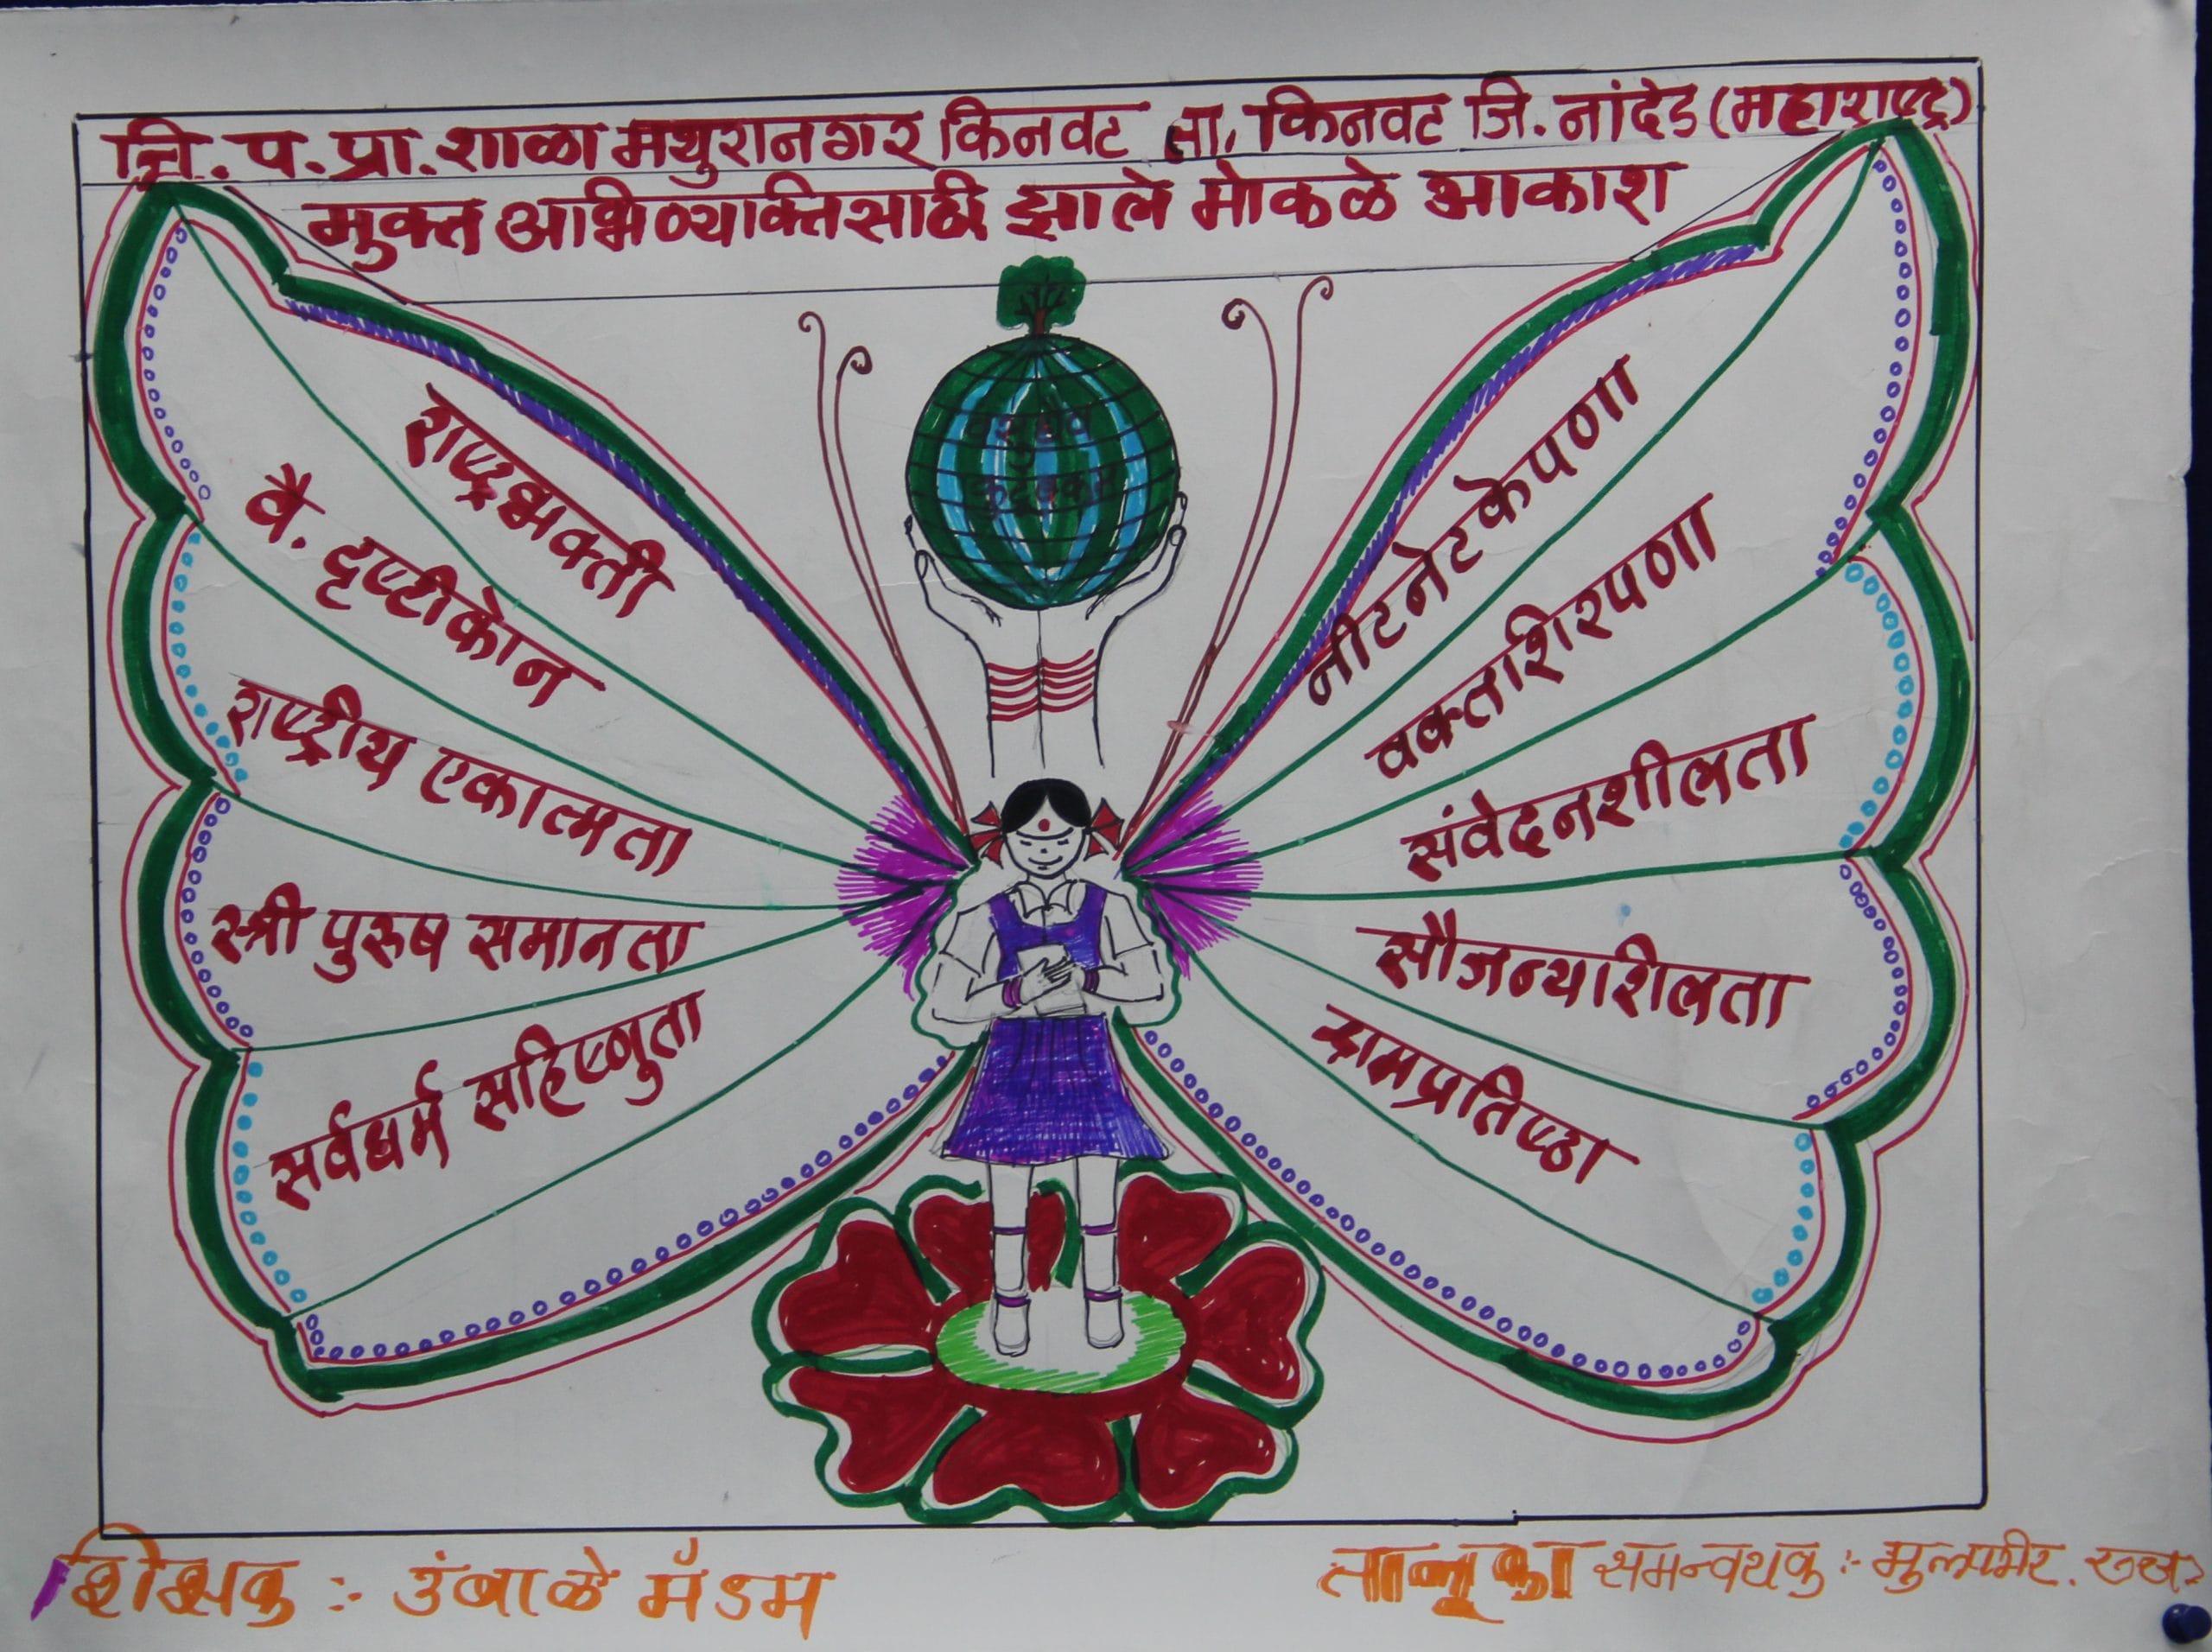 जि. प. प्रा. शाळा मथुरानगर किनवट ता. किनवट जि. नांदेड (महाराष्ट्र)
मुक्त अभिव्यक्तिसाठी झाले मोकळे आकाश
वसुधैव
कुटुंबकम
राष्ट्रभक्ती
वै. दृष्टीकोन
राष्ट्रीय एकात्मता
स्त्री पुरुष समानता
सर्वधर्म सहिष्णुता
नीटनेटकेपणा
वक्तशिरपणा
संवेदनशीलता
सौजन्यशिलता
श्रमप्रतिष्ठा
शिक्षक :- उंबाळे मॅडम
तालूका समन्वयक :-